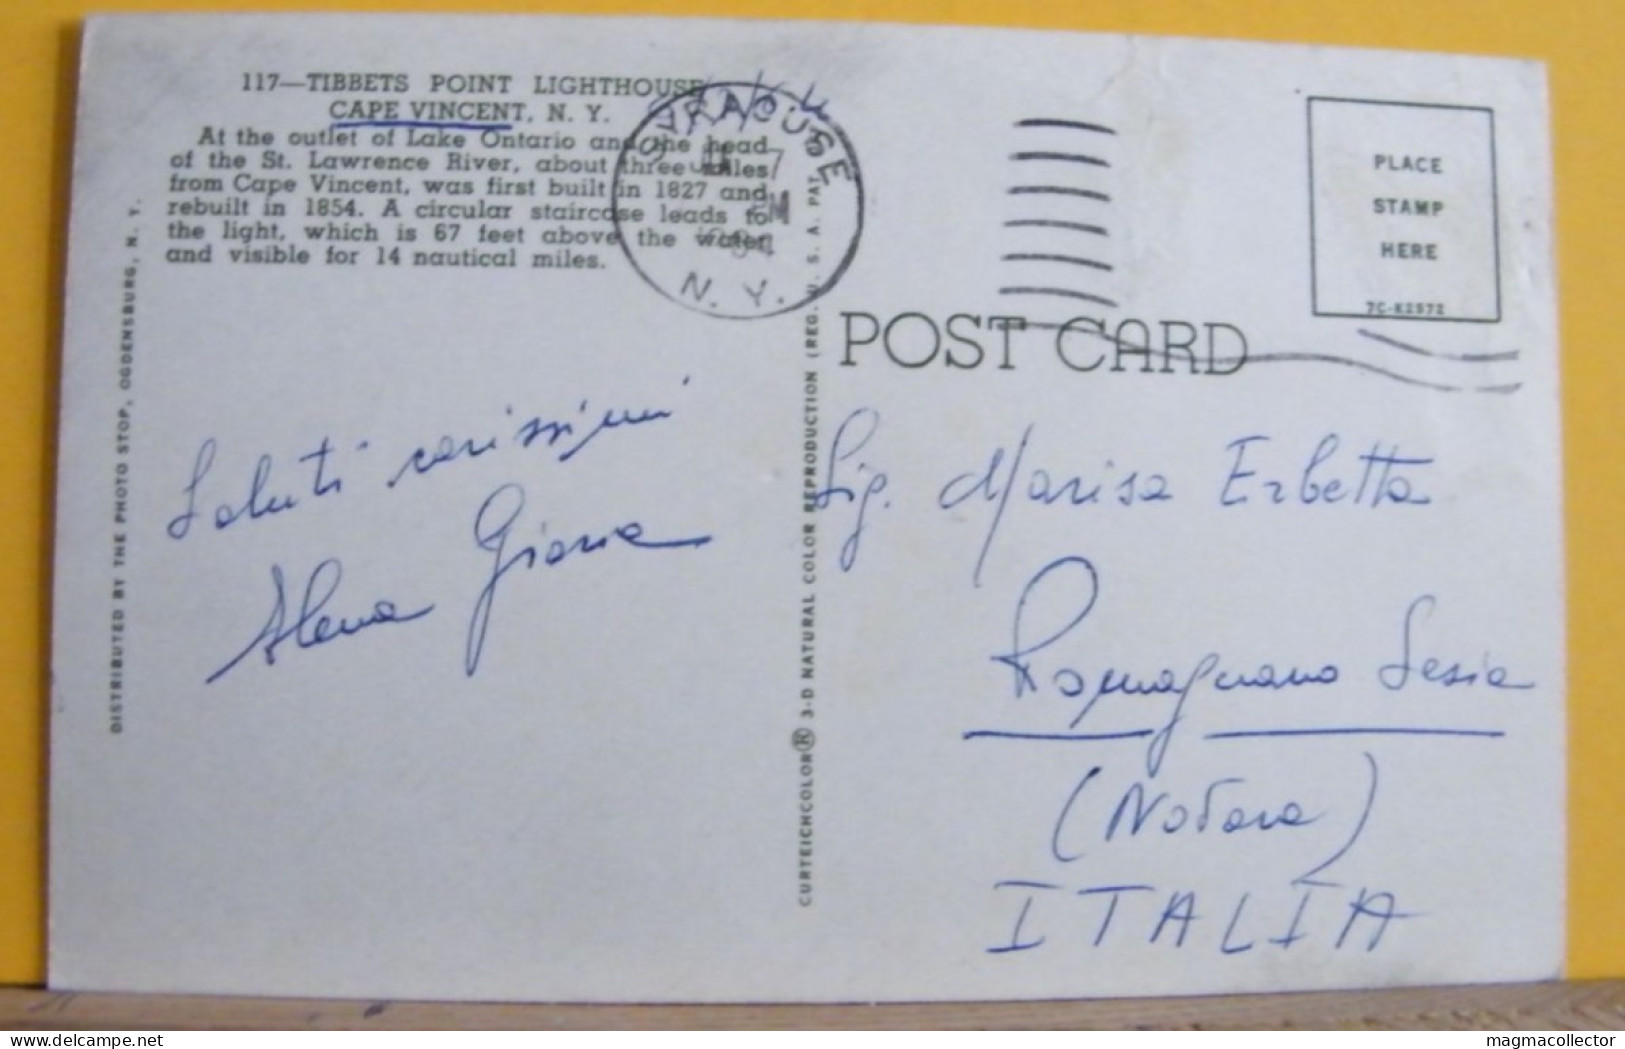 117—TIBBETS POINT LIGHTHOUSE
CAPE VINCENT, N. Y.
At the outlet of Lake Ontario and the head
of the St. Lawrence River, about three miles
from Cape Vincent, was first built in 1827 and
rebuilt in 1854. A circular staircase leads to
the light, which is 67 feet above the water
and visible for 14 nautical miles.
SYRACUSE
N. Y.
DISTRIBUTED BY THE PHOTO STOP, OGDENSBURG, N. Y.
CURTEICHCOLOR® 3-D NATURAL COLOR REPRODUCTION (REG. U. S. A. PAT.
PLACE
STAMP
HERE
7C-K2572
POST CARD
Saluti carissimi
Alena Giana
Sig. Marisa Erbetta
Romagnano Sesia
(Novara)
ITALIA
delcampe.net
magmacollector